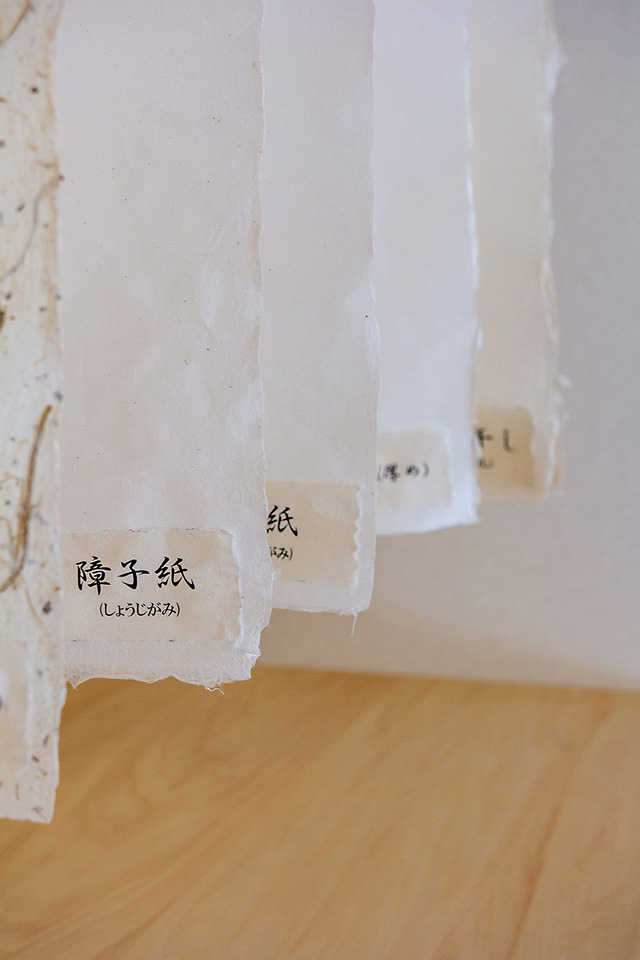 障子紙
(しょうじがみ)
紙
がみ)
(厚め)
干し